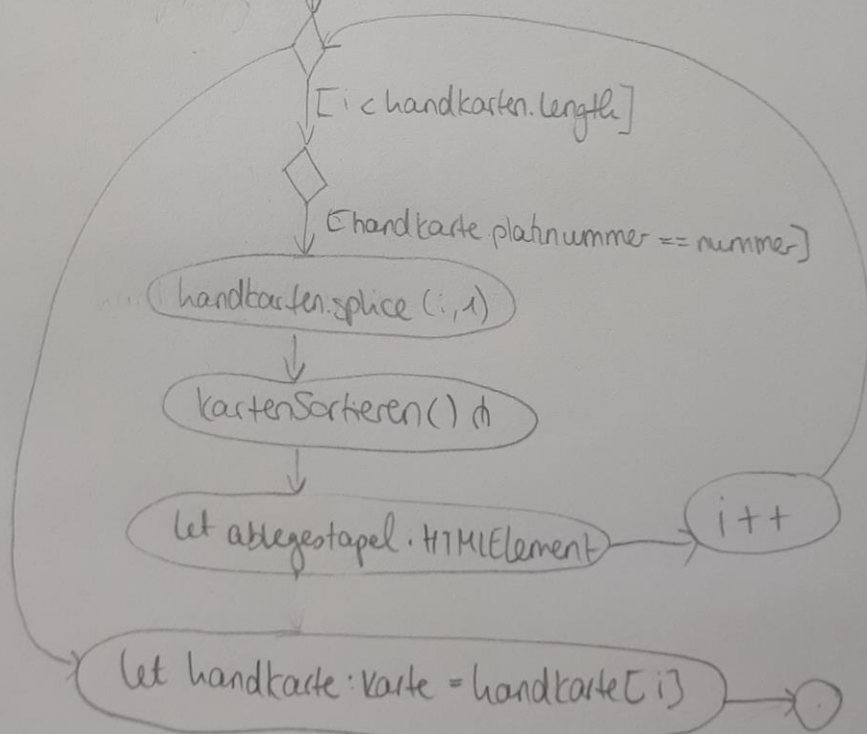 [i < handkarten.length]
[handkarte.platznummer == nummer]
handkarten.splice(i,1)
kartenSortieren() ⋔
let ablegestapel.HTMLElement
i++
let handkarte:Karte = handkarte[i]